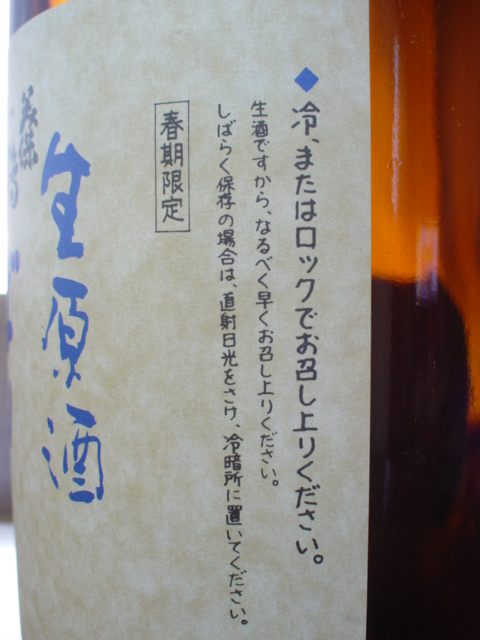 ◆冷、またはロックでお召し上りください。
生酒ですから、なるべく早くお召し上りください。
しばらく保存の場合は、直射日光をさけ、冷暗所に置いてください。
春期限定
生原酒